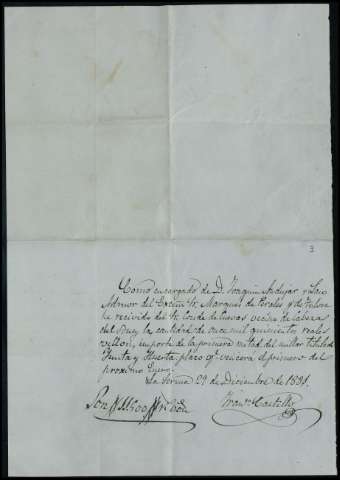 3
Como encargado de D. Joaquin Andujar y Laso
Admor del Excmo Sr. Marqués de Perales y de Tolosa
he recivido del Sr. Conde de vecino de Cabeza
del Buey la cantidad de once mil quinientos reales
vellon, importe de la primera mitad del millar titulado
Junta y Huerta, plazo qe. vencerá el primero del
proximo Enero.
La Serena 29 de Diciembre de 1851.
Son 11,500 rs. von. Franco. Castillo